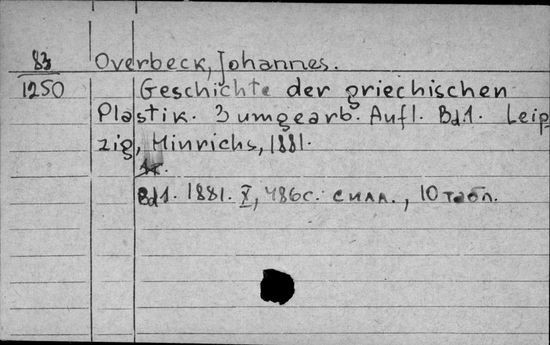 83 Overbeck, Johannes.
1250 Geschichte der griechischen
Plastik. 3 umgearb. Aufl. Bd.1. Leip
zig, Hinrichs, 1881.
Bd1. 1881. X, 486с. с илл., 10 табл.